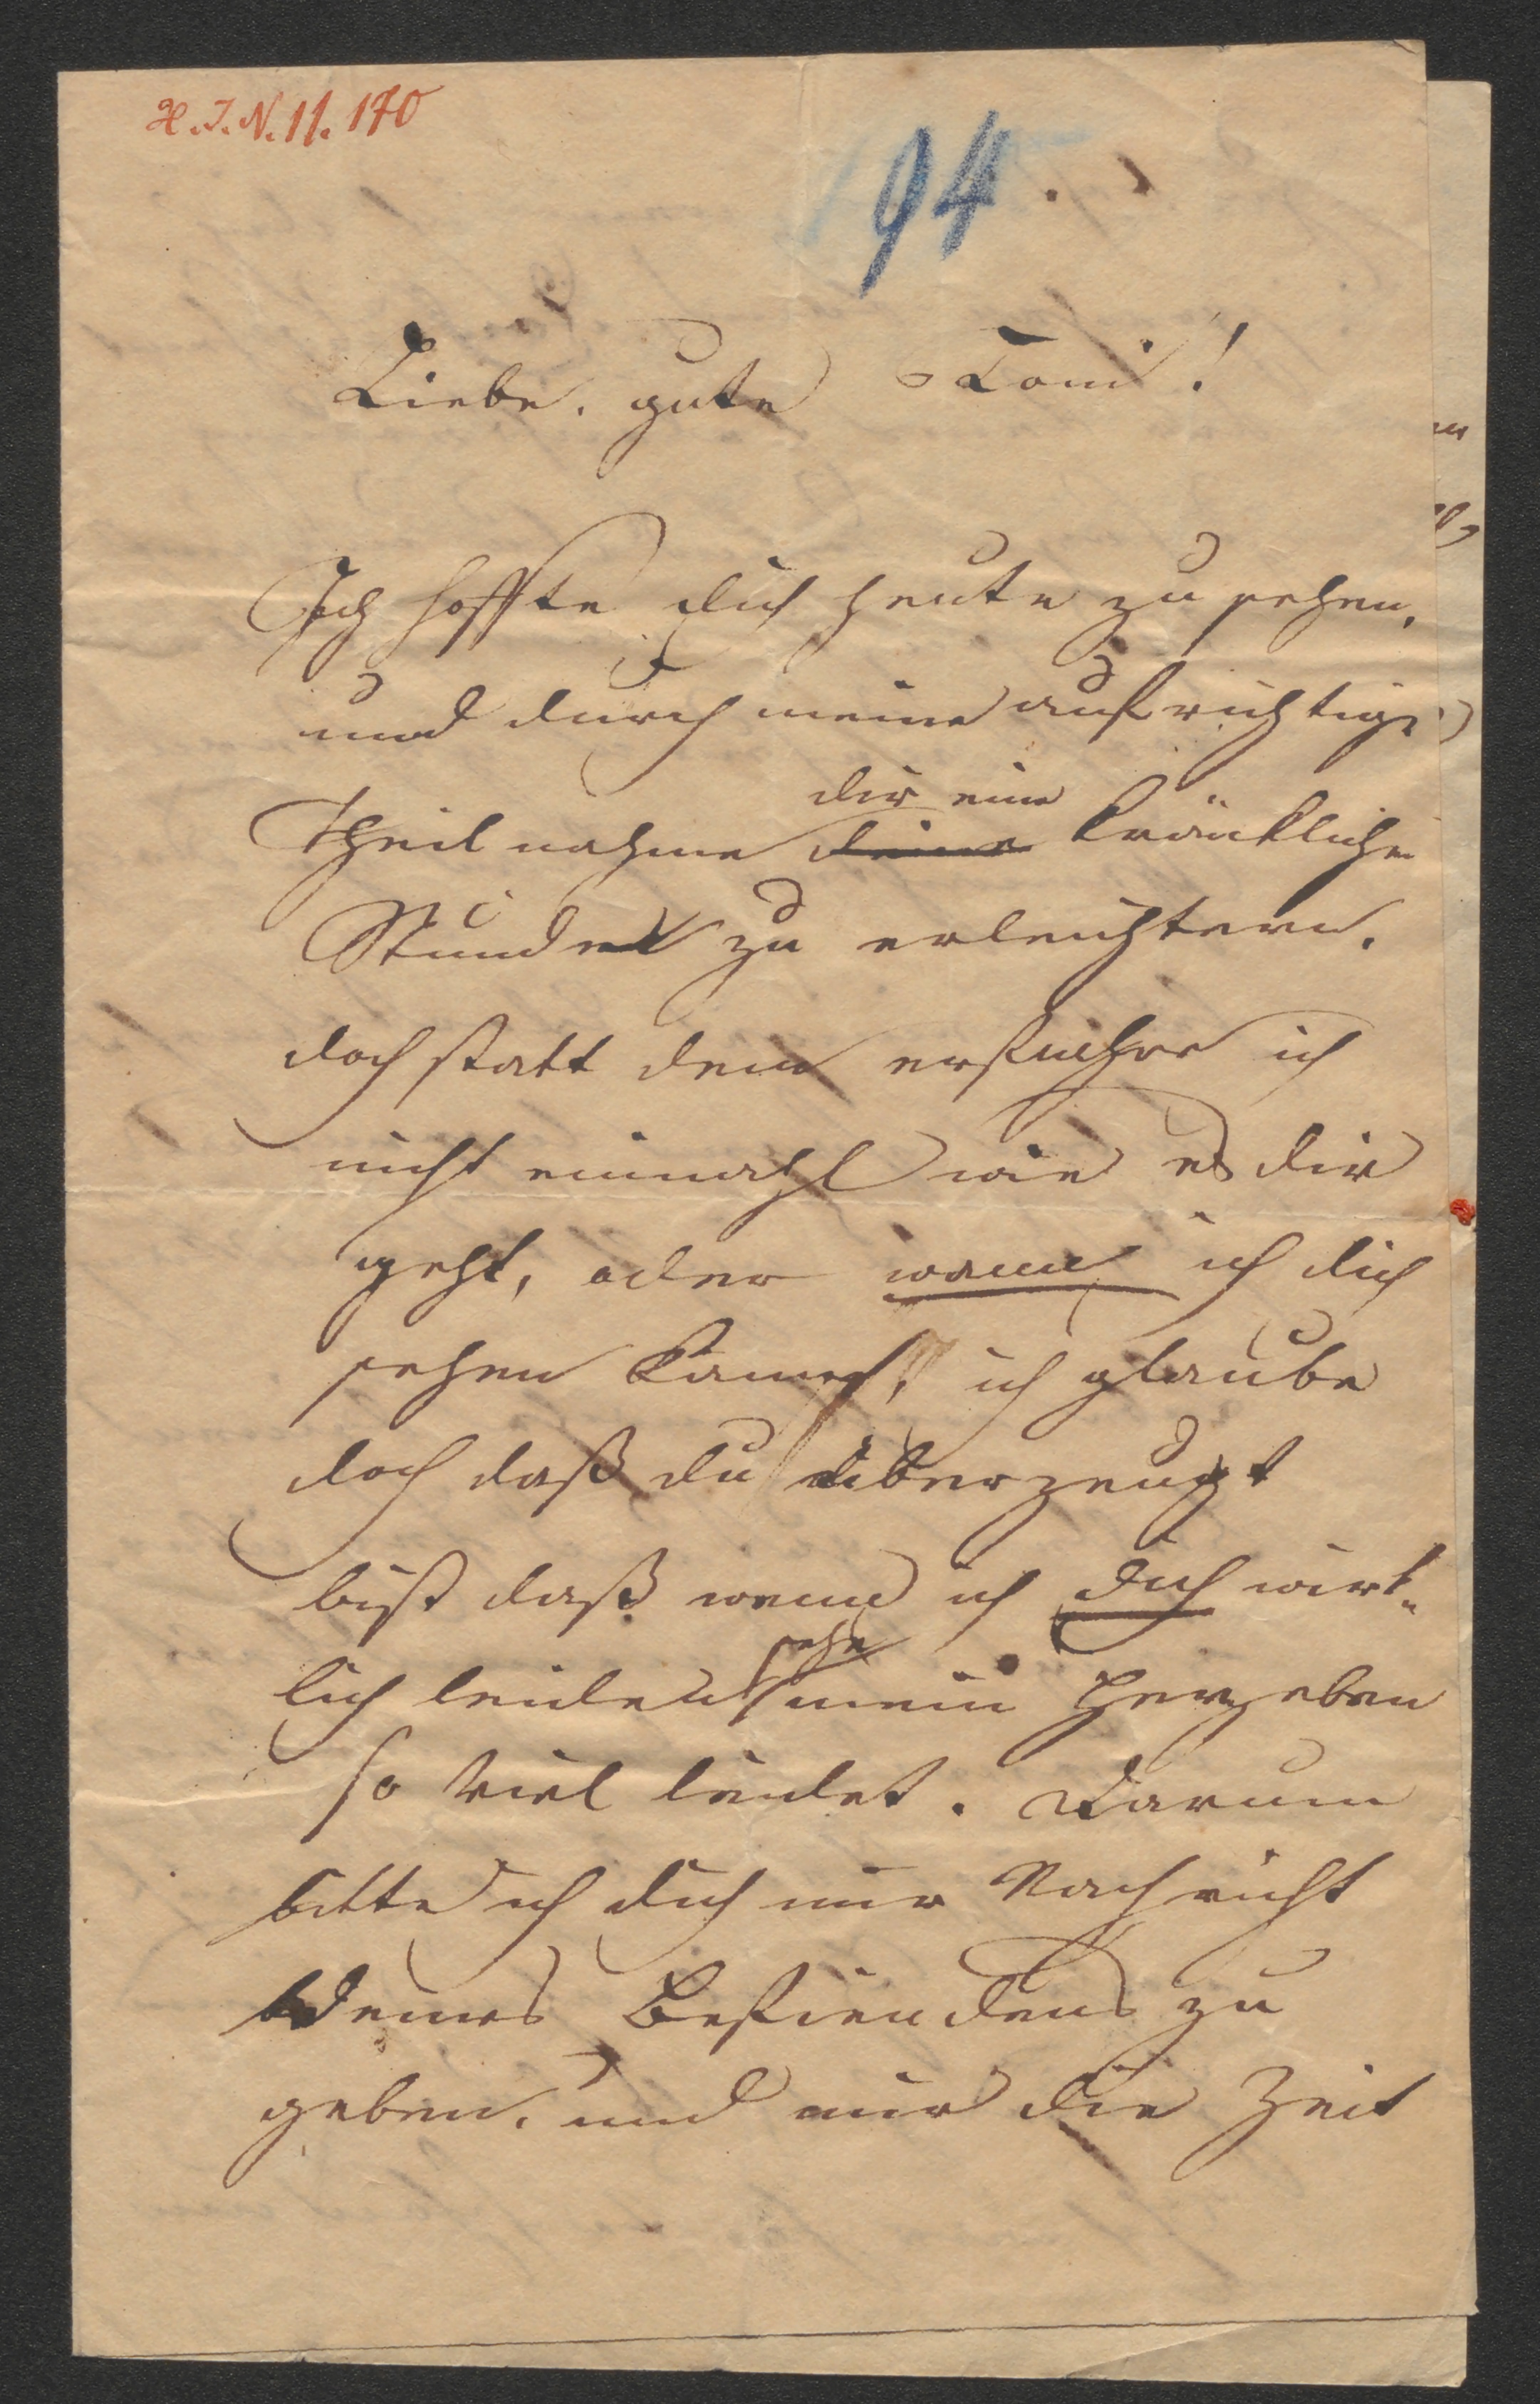 H.I.N. 11.170
94.
Liebe, gute Toni!
Ich hoffte dich heute zu sehen,
und durch meine aufrichtige
dir eine
Theilnahme deine kränkliche
Stunde zu erleichtern.
doch statt dem erfuhr ich
nicht einmahl wie es dir
geht, oder wann ich dich
sehen kann, ich glaube
doch daß du überzeugt
bist daß wenn ich dich wirk-
sehe
lich leiden mein Herz eben
so viel leidet. Darum
bitte ich dich mir Nachricht
deines Befiendens zu
geben, und mir die Zeit